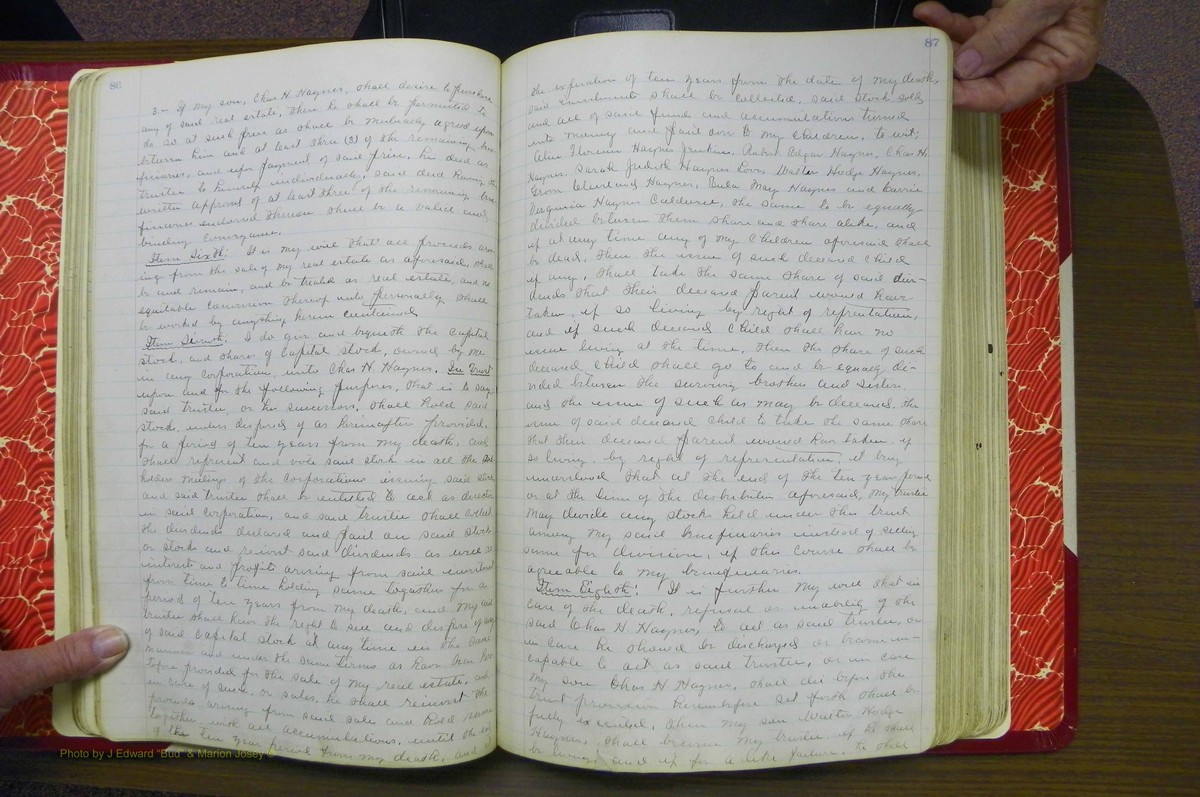 86
3.- If my son, Chas H. Haynes, shall desire to purchase
any of said real estate, then he shall be permitted to
do so at such price as shall be mutually agreed upon
between him and at least three (3) of the remaining bene-
ficiaries, and upon payment of said price, his deed as
trustee to himself individually, said deed having the
written approval of at least three of the remaining bene-
ficiaries endorsed thereon shall be a valid and
binding conveyance.
Item Sixth: It is my will that all proceeds aris-
ing from the sale of my real estate as aforesaid, shall
be and remain, and be treated as real estate, and no
equitable conversion thereof into personalty shall
be worked by anything herein contained
Item Seventh: I do give and bequeath the capital
stock, and shares of capital stock, owned by me
in any corporation, unto Chas H. Haynes. In Trust
upon and for the following purposes, that is to say,
said trustee, or his successors, shall hold said
stock, unless disposed of as hereinafter provided,
for a period of ten years from my death, and
shall represent and vote said stock in all the stock
holders meetings of the corporations issuing said stock
and said trustee shall be entitled to act as director
in said corporation, and said trustee shall collect
the dividends declared and paid on said stock
or stocks and reinvest said dividends as well as
interests and profits arising from said investment
from time to time holding same together for a
period of ten years from my death, and my said
trustee shall have the right to sell and dispose of any
of said capital stock at any time in the same
manner and under the same terms as have been here-
tofore provided for the sale of my real estate, and
in case of such sale, or sales, he shall reinvest the
proceeds arising from said sale and hold same
together with all accumulations, until the end
of the ten year period from my death, and at
87
the expiration of ten years from the date of my death,
said investments shall be collected, said stock sold,
and all of said funds and accumulations turned
into money and paid over to my children, to wit;
Florence Haynes Jenkins, Edgar Haynes, Chas H.
Haynes, Sarah Judith Haynes Love, Walter Hodge Haynes,
Grover Cleveland Haynes, Beulah May Haynes and Carrie
Virginia Haynes, the same to be equally
divided between them share and share alike, and
if at any time any of my children aforesaid shall
be dead, then the issue of such deceased child
if any, shall take the same share of said divi-
dends that their deceased parent would have
taken, if so living by right of representation,
and if such deceased child shall have no
issue living at the time, then the share of such
deceased child shall go to and be equally di-
vided between the surviving brothers and sisters,
and the issue of such as may be deceased, the
issue of said deceased child to take the same share
that their deceased parent would have taken, if
so living, by right of representation, it being
understood that at the end of the ten year period
or at the time of the distribution aforesaid, my trustee
may divide any stocks held under this trust
among my said beneficiaries instead of selling
same for division, if this course shall be
agreeable to my beneficiaries.
Item Eighth: It is further my will that in
case of the death, refusal or inability of the
said Chas H. Haynes, to act as said trustee, or
in case he should be discharged or become in-
capable to act as said trustee, or in case
my son Chas H Haynes, shall die before the
trust provisions hereinbefore set forth shall be
fully executed, then my son Walter Hodge
Haynes, shall become my trustee if he shall
be living, and if for a like failure to the
Photo by J Edward "Bud" & Marion Josey ©